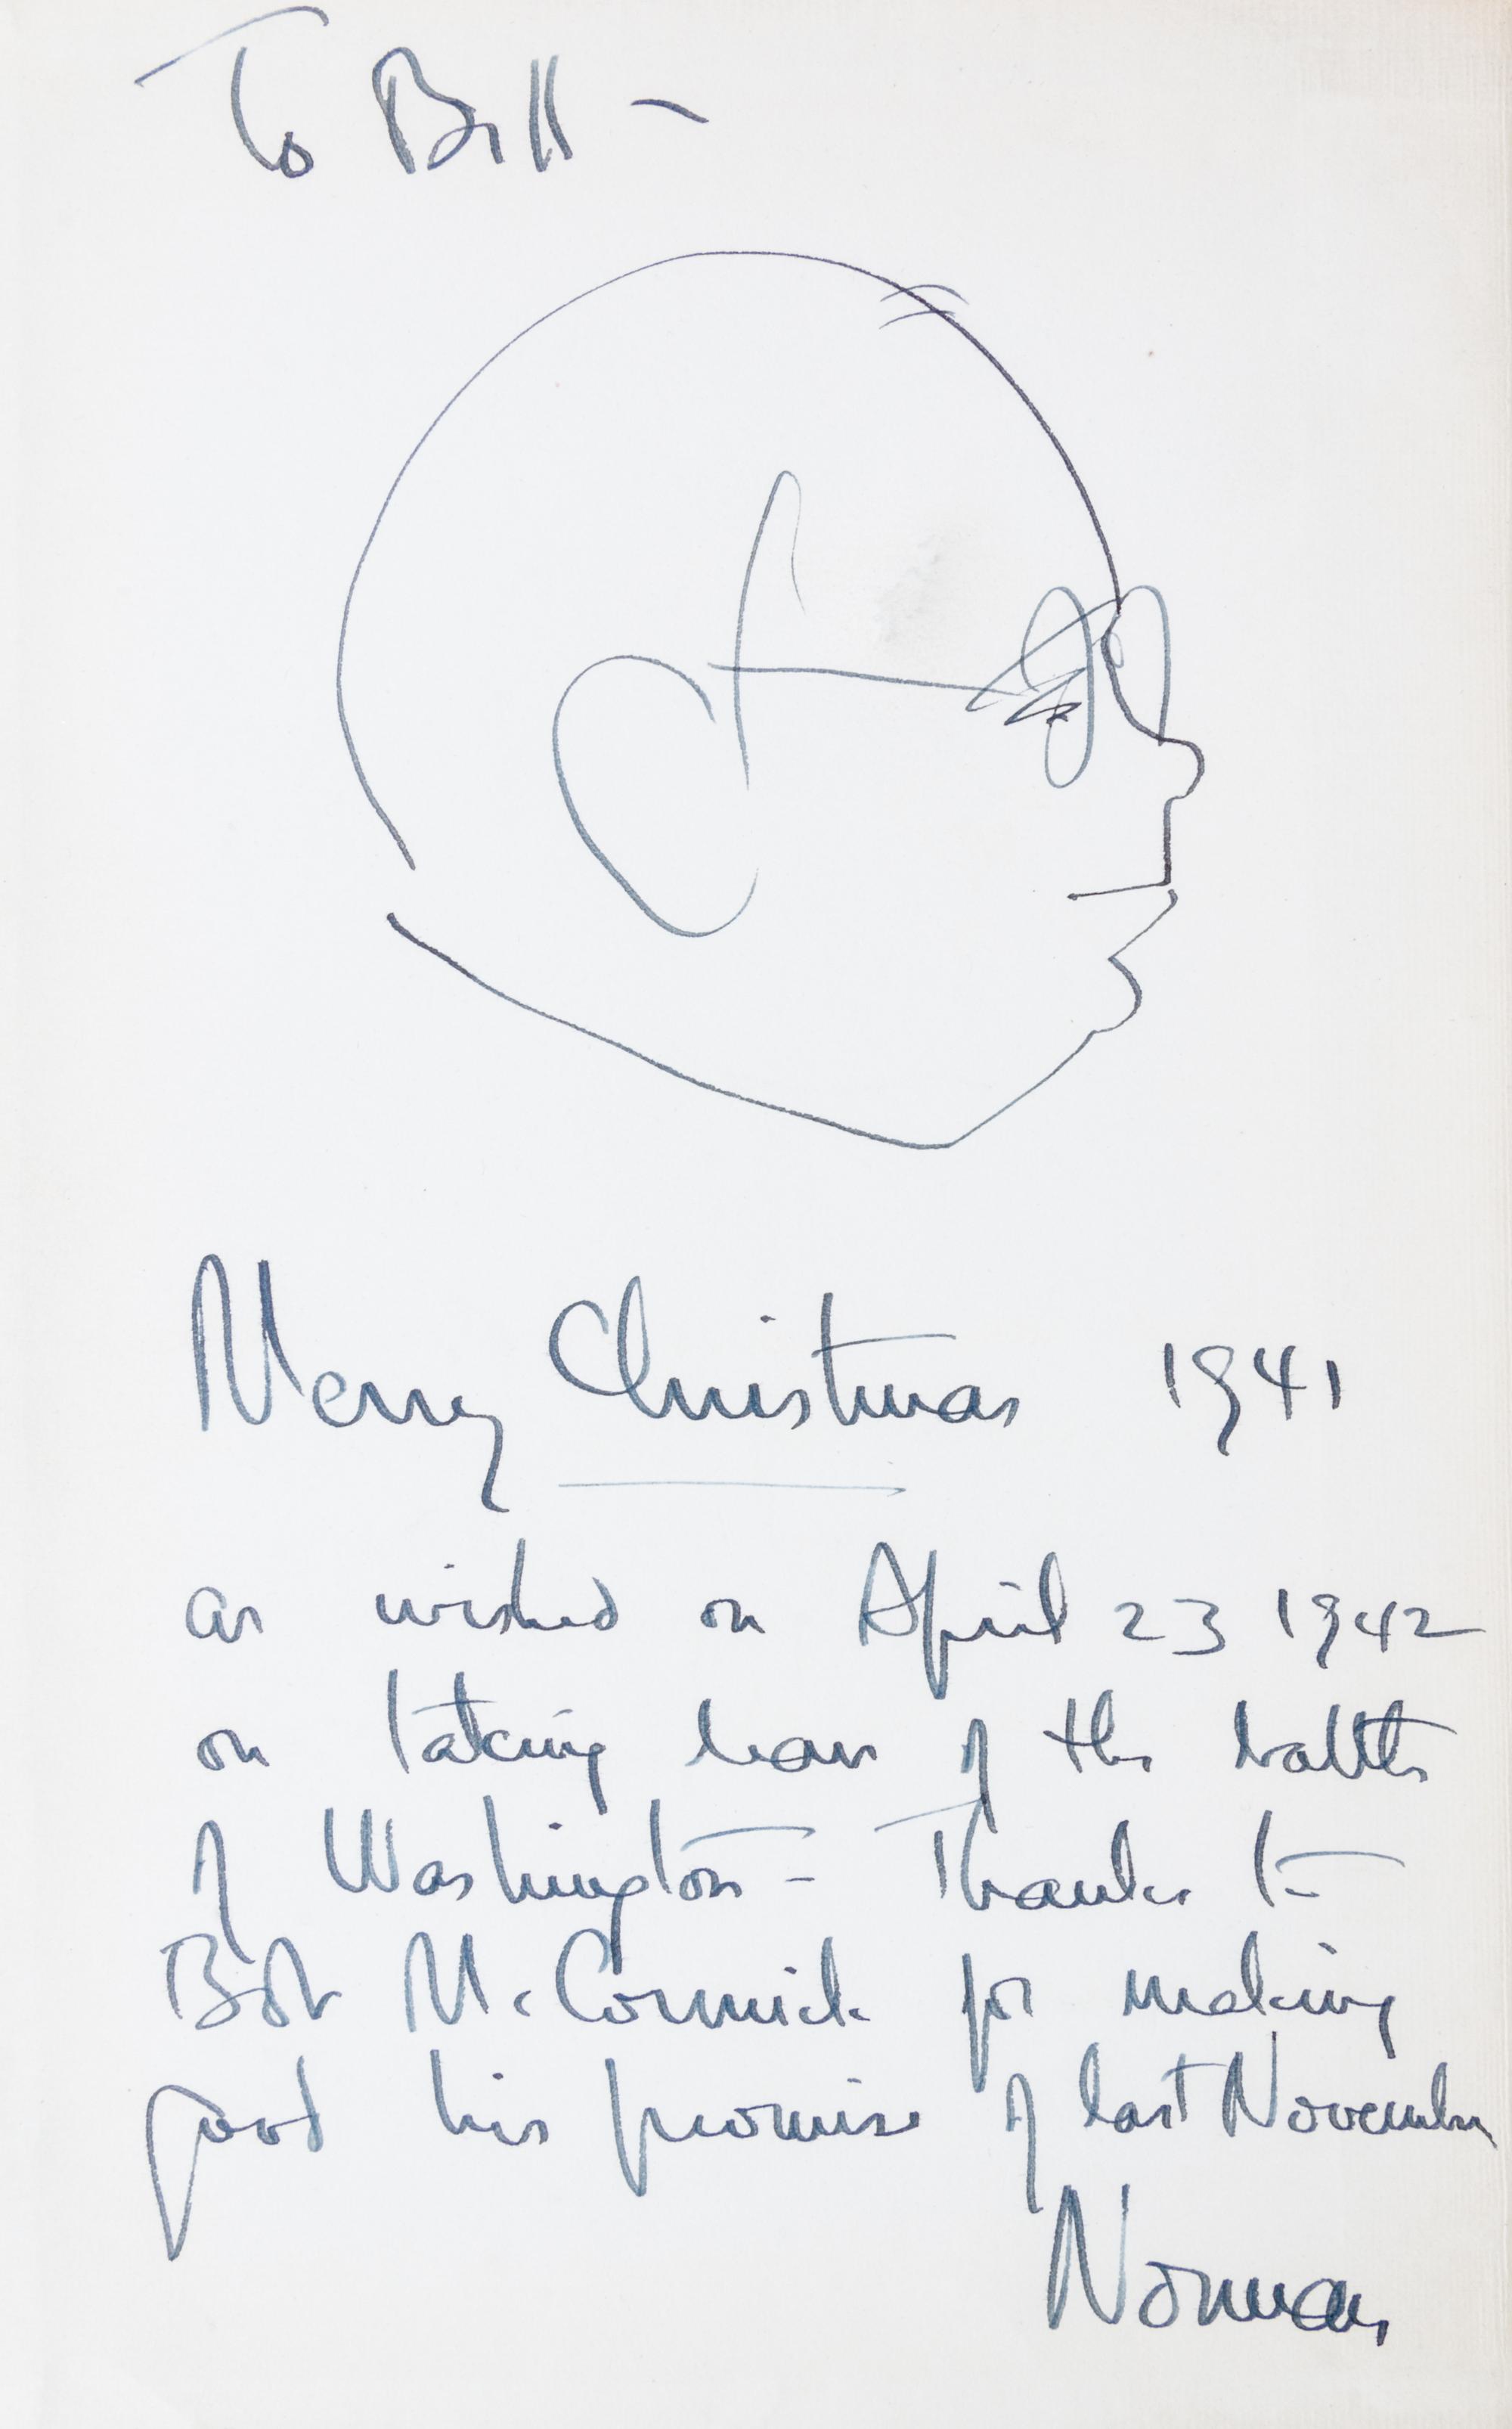 To Bill –
Merry Christmas 1941
as wished on April 23 1942
on taking leave of the battle
of Washington – Thanks to
Bob McCormick for making
good his promise of last November
Norman